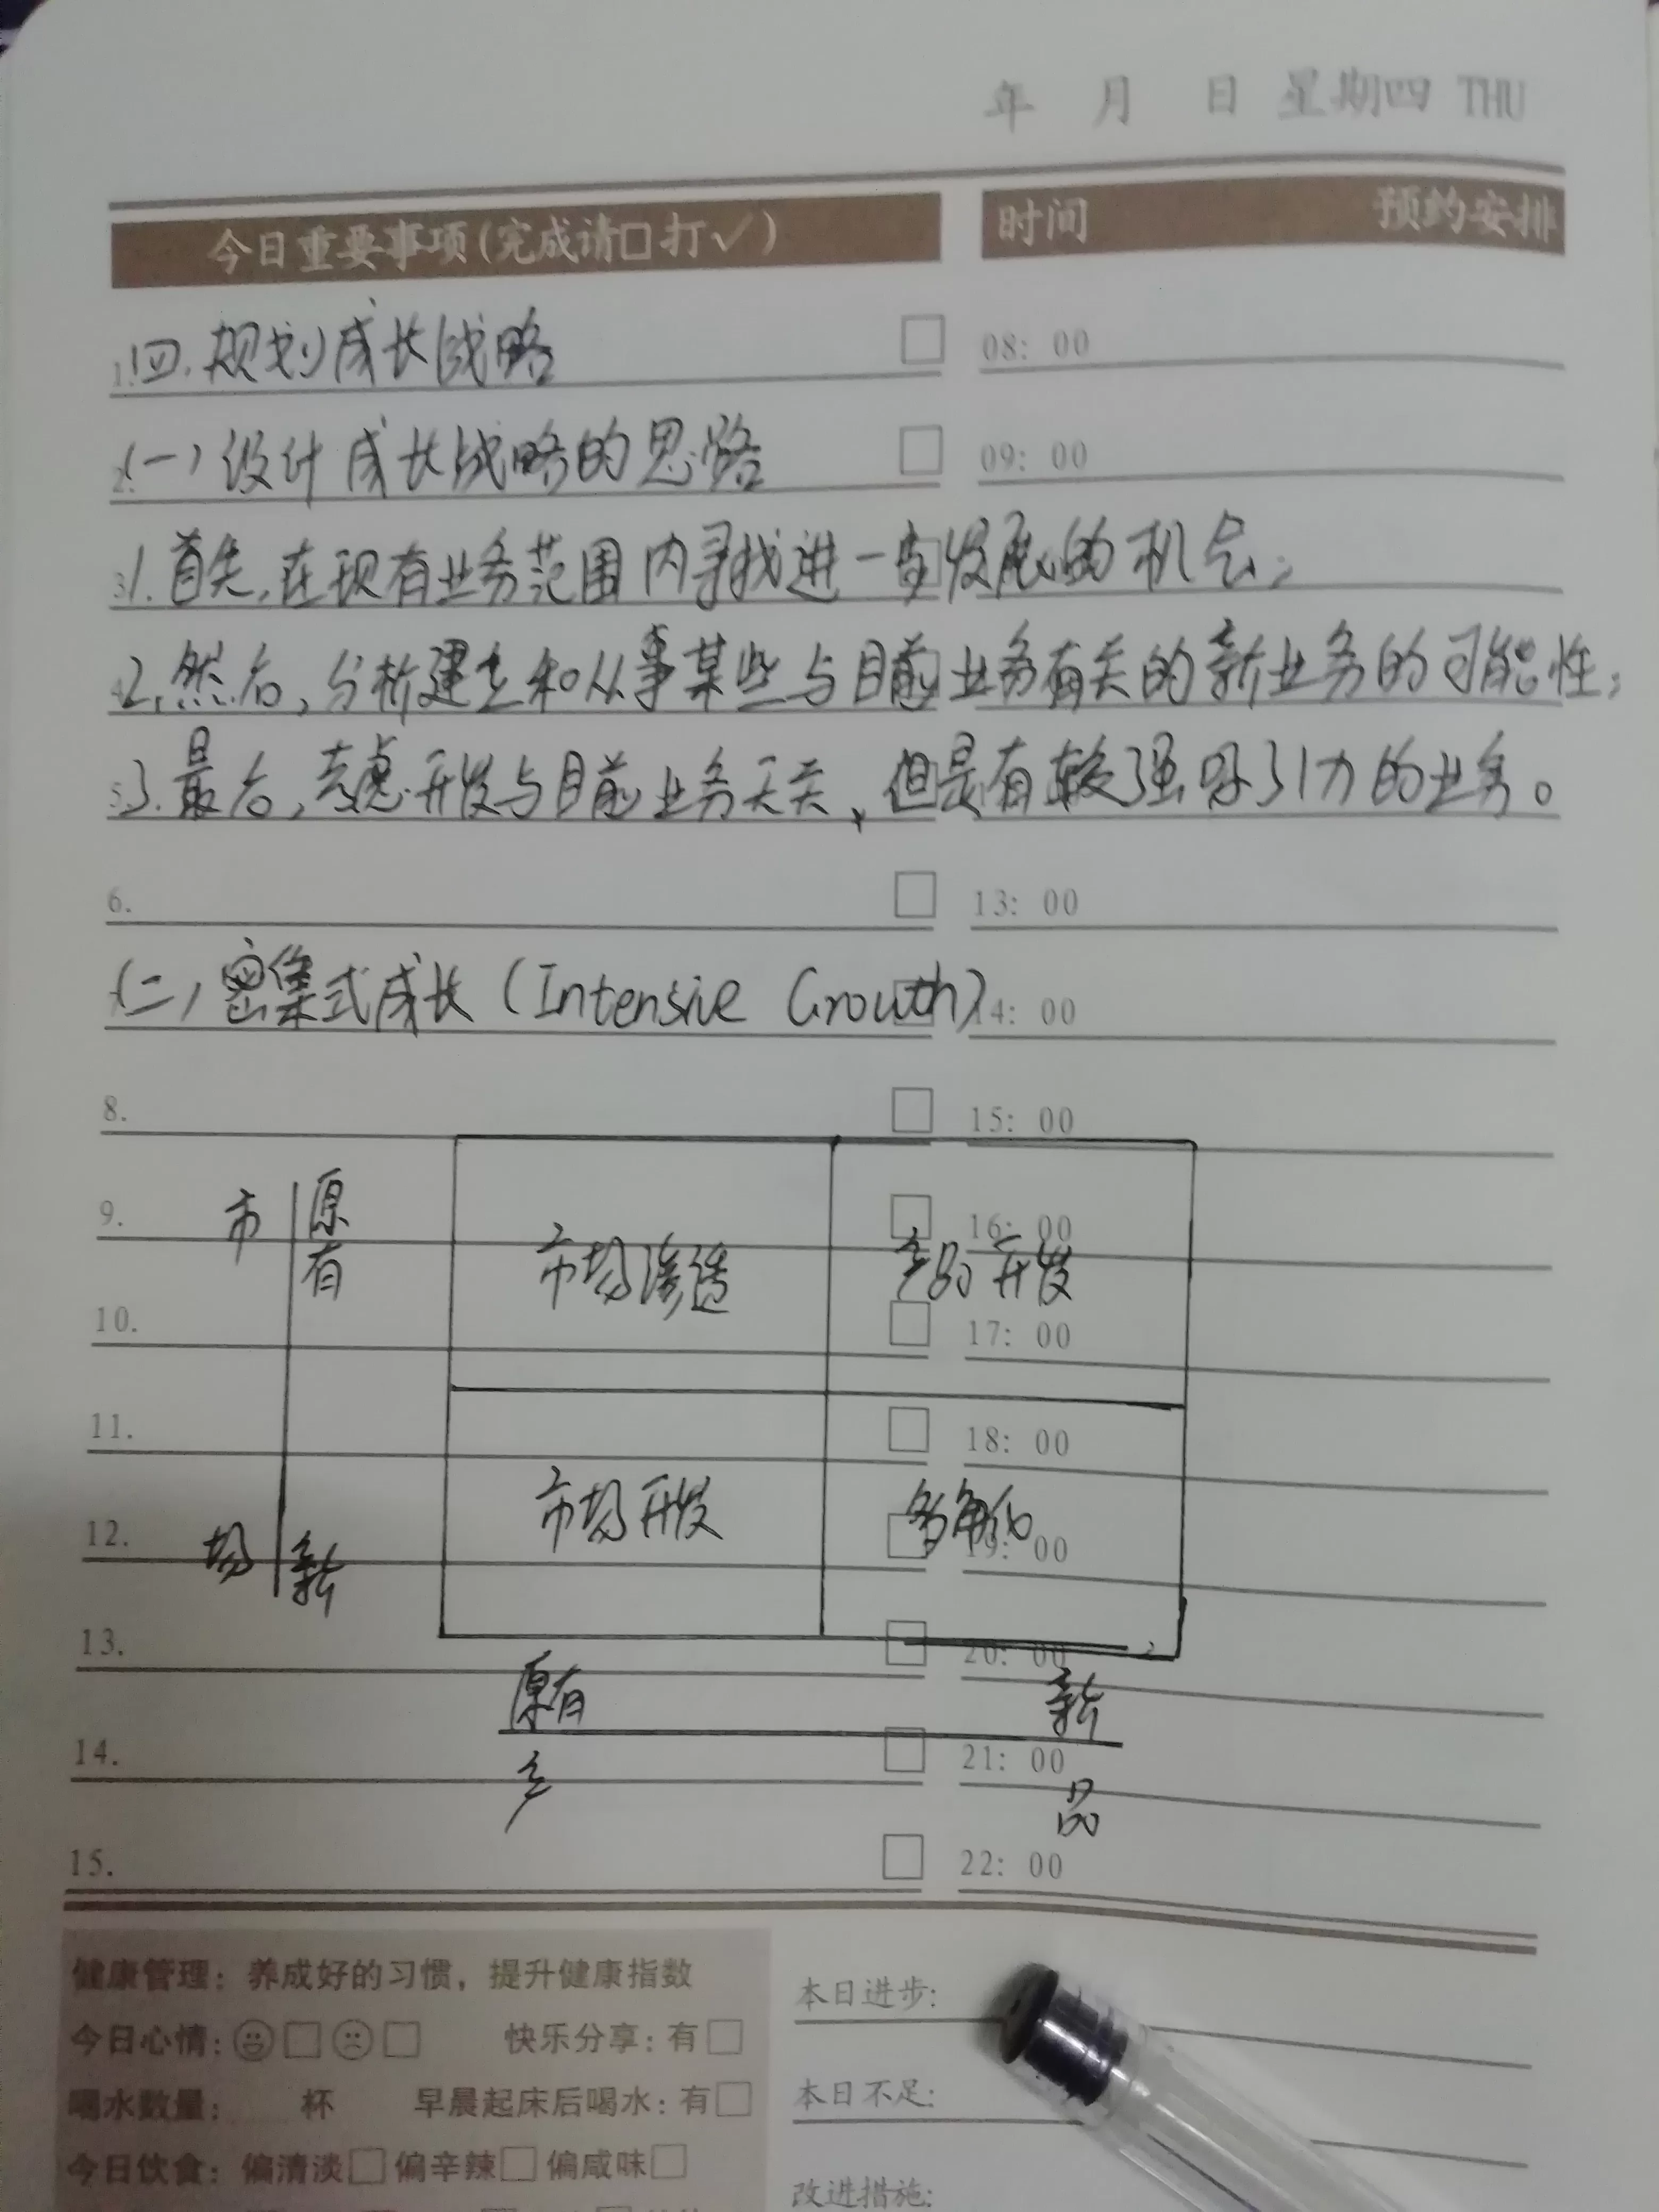 年 月 日 星期四 THU
今日重要事项(完成请□打✓) 时间 预约安排
1. 四.规划成长战略 □ 08: 00
2. (一)设计成长战略的思路 □ 09: 00
3. 1.首先,在现有业务范围内寻找进一步发展的机会;
4. 2.然后,分析建立和从事某些与目前业务有关的新业务的可能性;
5. 3.最后,考虑开发与目前业务无关、但是有较强吸引力的业务。
6. □ 13: 00
(二)密集式成长(Intensive Growth) 14: 00
8. □ 15: 00
9. 市 原有 市场渗透 产品开发 □ 16: 00
10. □ 17: 00
11. □ 18: 00
12. 场 新 市场开发 多角化 □ 19: 00
13. □ 20: 00
原有 新
14. □ 21: 00
产 品
15. □ 22: 00
健康管理: 养成好的习惯，提升健康指数
今日心情: □ □ 快乐分享: 有□
喝水数量: 杯 早晨起床后喝水: 有□
今日饮食: 偏清淡□偏辛辣□偏咸味□
本日进步:
本日不足:
改进措施: